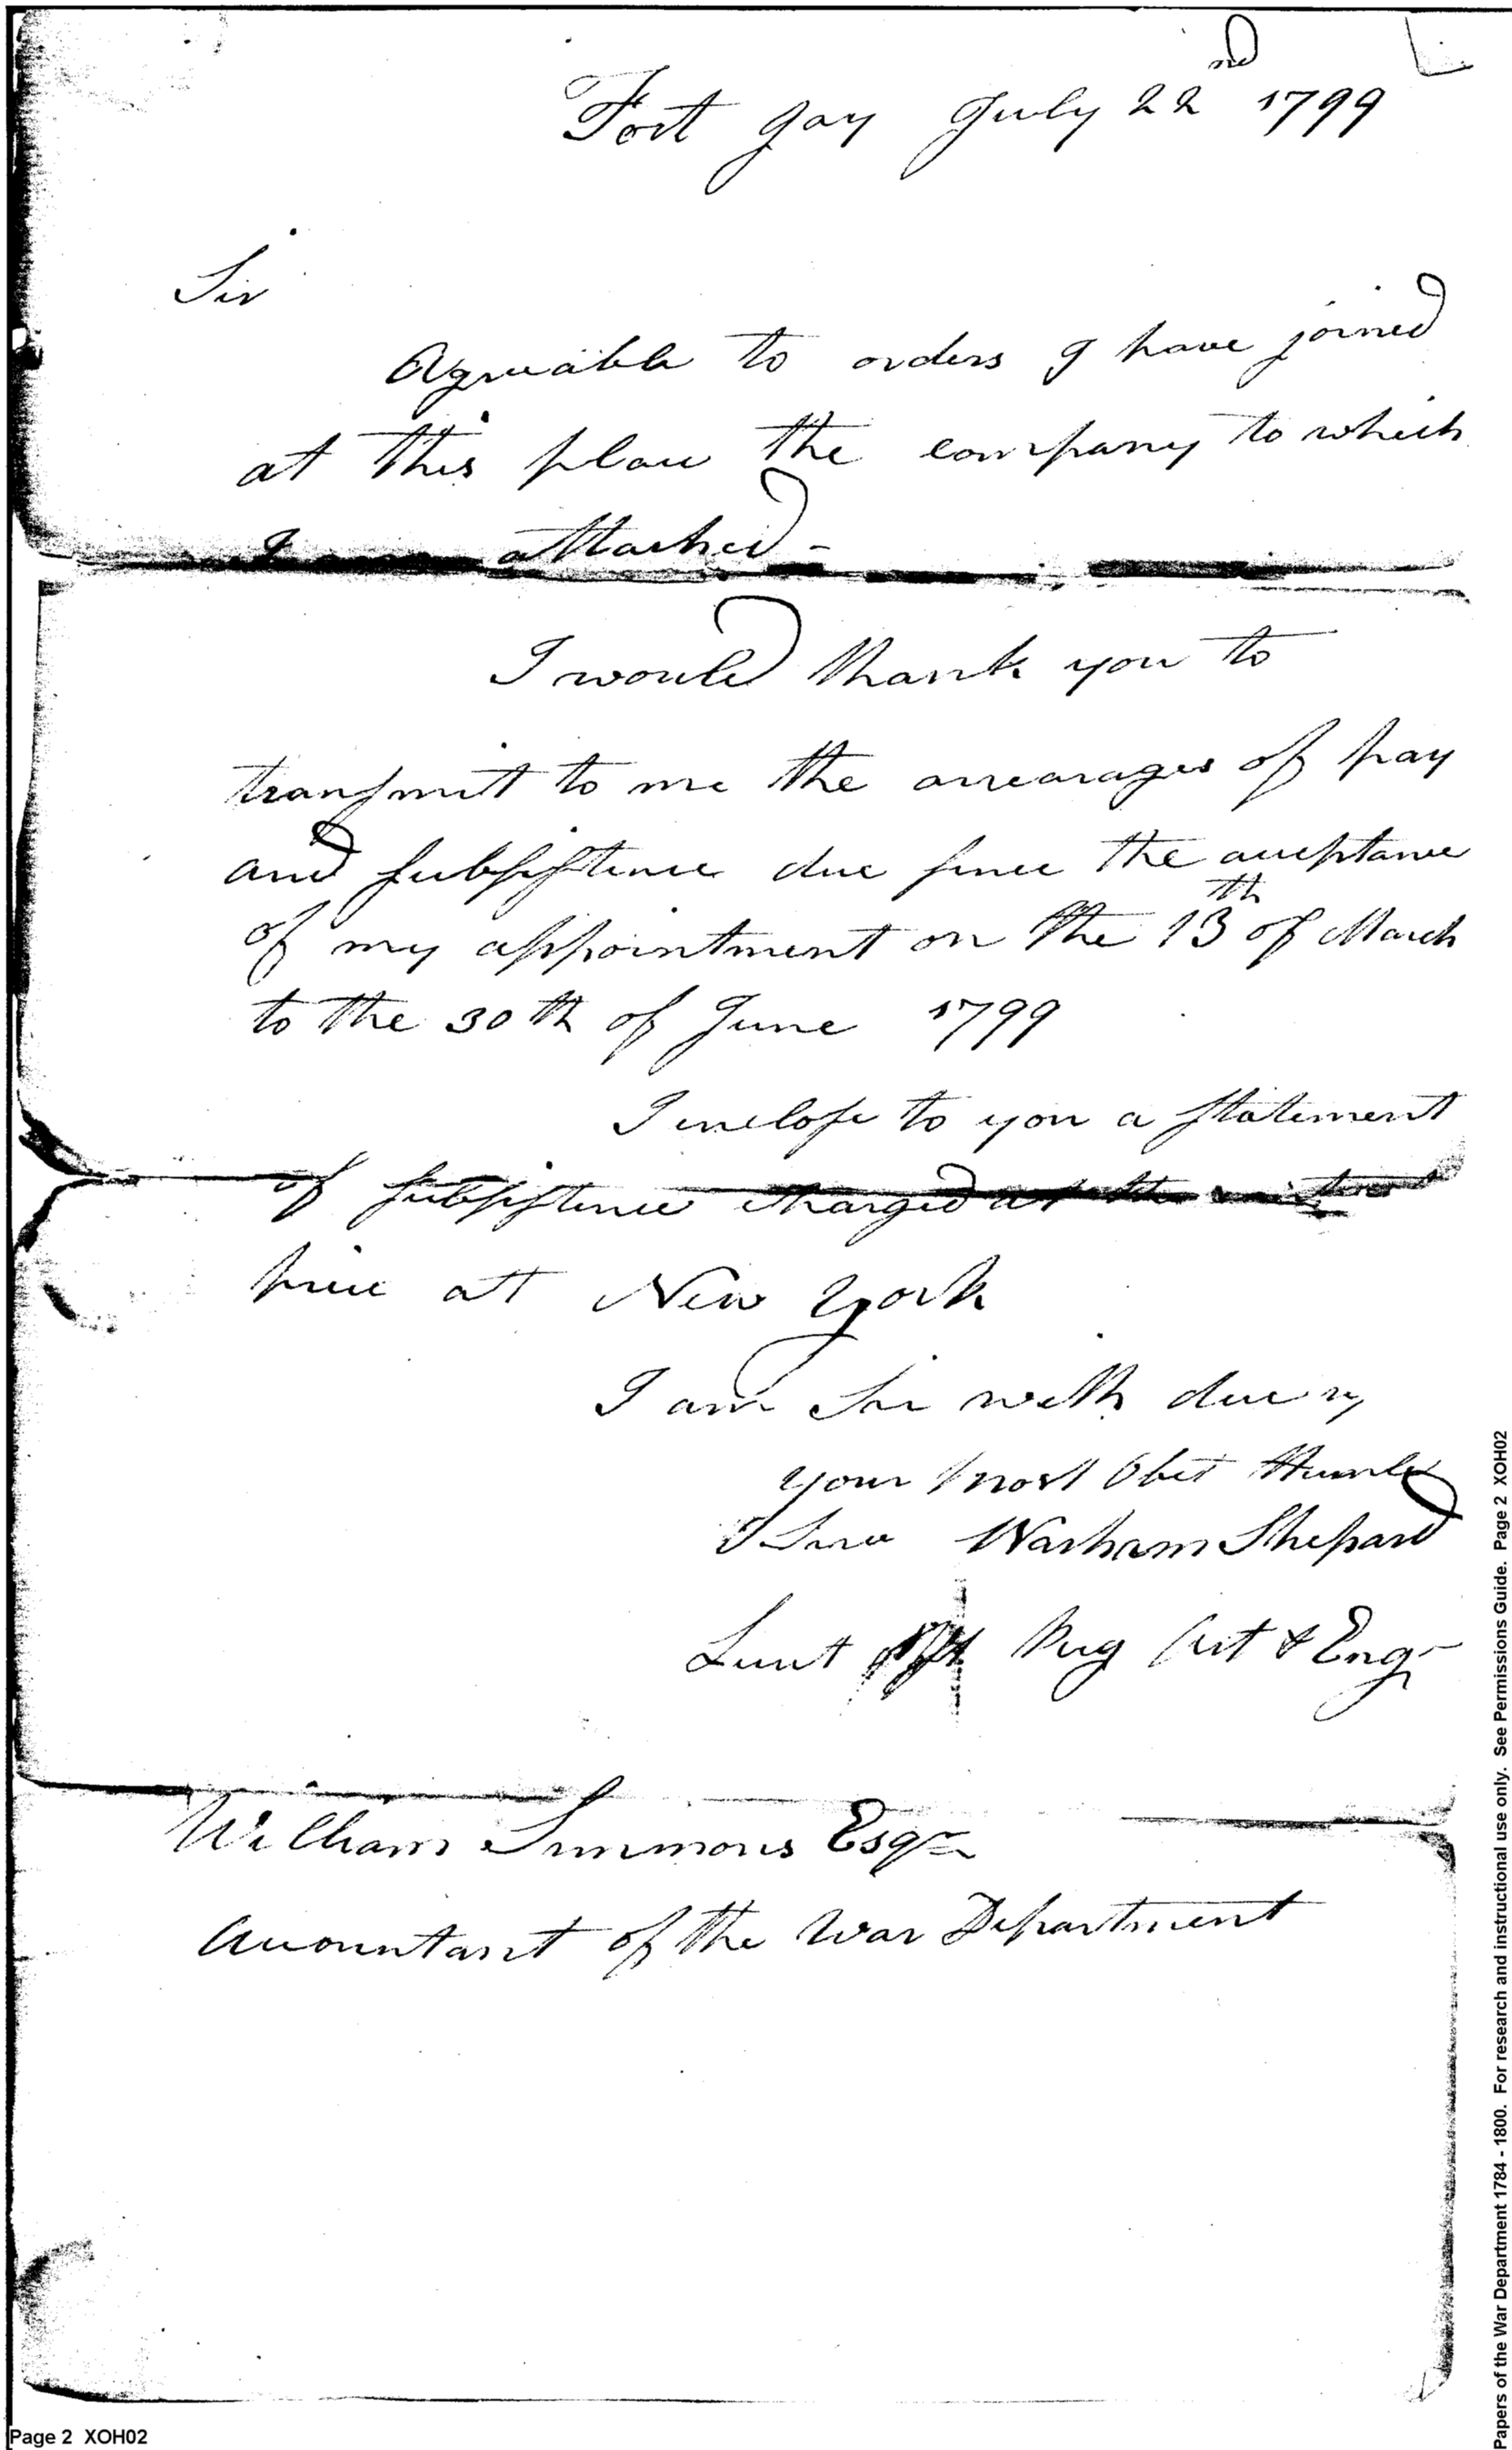 Fort Jay July 22nd 1799
Sir
Agreeable to orders I have joined
at this place the company to which
I am attached -
I would thank you to
transmit to me the arrearages of pay
and subsistence due since the acceptance
of my appointment on the 13th of March
to the 30th of June 1799
I inclose to you a statement
of subsistence charged at the
price at New York
I am Sir with due
your most Obet Humle
Serv Warham Shepard
Lieut Reg Art & Engr
William Simmons Esqr
Accountant of the War Department
Page 2 XOH02
Papers of the War Department 1784 - 1800. For research and instructional use only. See Permissions Guide. Page 2 XOH02